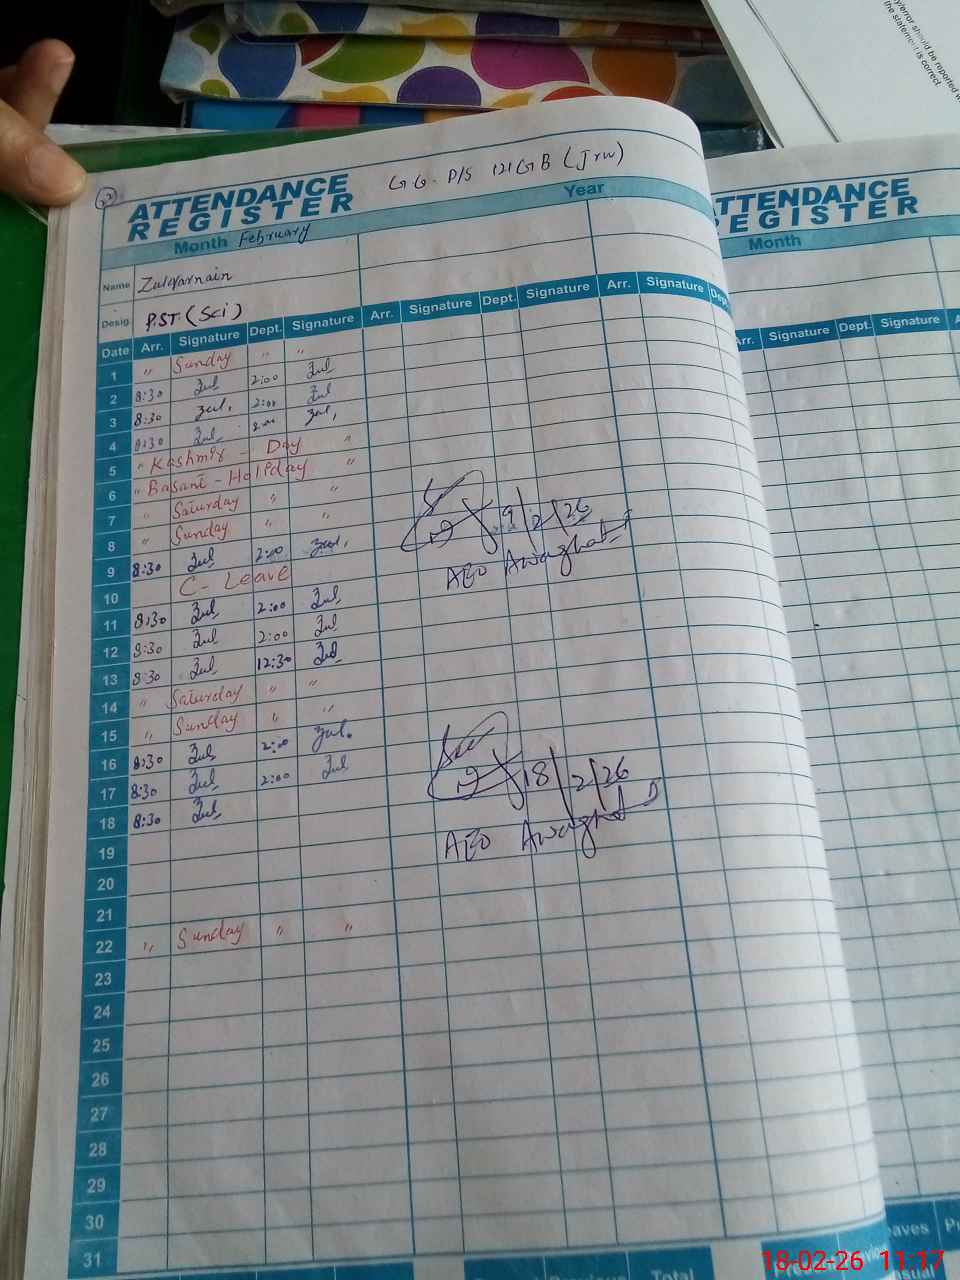 y/error should be reported w
the statement is correct
G G. P/S 121 GB (Jrw)
ATTENDANCE
REGISTER
Year
Month February
Name Zulqarnain
Desig. P.S.T (Sci)
Date Arr. Signature Dept. Signature Arr. Signature Dept. Signature Arr. Signature Dept.
1 " Sunday " "
2 8:30 Zul 2:00 Zul
3 8:30 Zul. 2:00 Zul
4 8:30 Zul 2:00 Zul.
5 " Kashmir - Day "
6 " Basant - Holiday "
7 " Saturday " "
8 " Sunday " "
9 8:30 Zul 2:00 Zul.
10 C - Leave
11 8:30 Zul 2:00 Zul
12 8:30 Zul 2:00 Zul
13 8:30 Zul 12:30 Zul
14 " Saturday " "
15 " Sunday " "
16 8:30 Zul 2:00 Zul.
17 8:30 Zul 2:00 Zul
18 8:30 Zul
19
20
21
22 " Sunday " "
23
24
25
26
27
28
29
30
31
9/2/26
AEO Awaghat
18/2/26
AEO Awaghat
Total
TTENDANCE
REGISTER
Month
Arr. Signature Dept. Signature
eaves
18-02-26 11:17